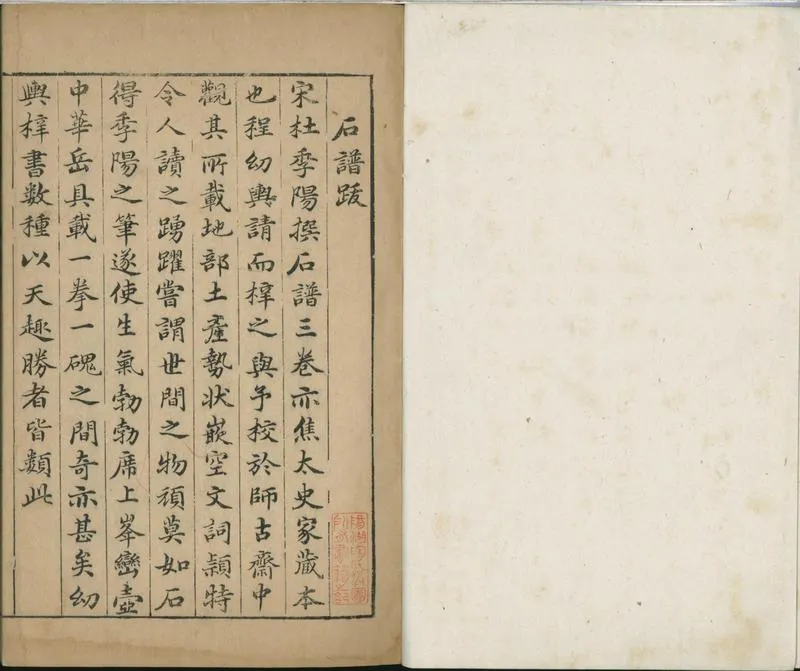 石譜跋
宋杜季陽撰石譜三卷亦焦太史家藏本
也程幼輿請而梓之與予校於師古齋中
觀其所載地部土產勢狀嵌空文詞頴特
令人讀之踴躍嘗謂世間之物頑莫如石
得季陽之筆遂使生氣勃勃席上峯巒壺
中華岳具載一拳一磈之間奇亦甚矣幼
輿梓書数種以天趣勝者皆類此